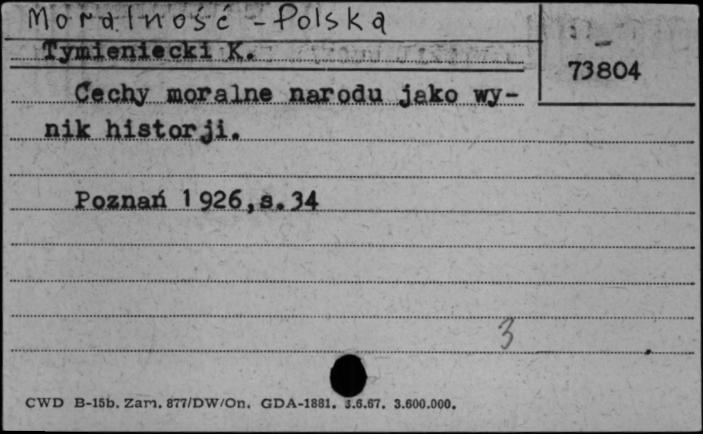 Moralność - Polska
Tymieniecki K.
73804
Cechy moralne narodu jako wy-
nik historji.
Poznań 1926,s.34
3
CWD B-15b. Zam. 877/DW/On. GDA-1881. 3.6.67. 3.600.000.